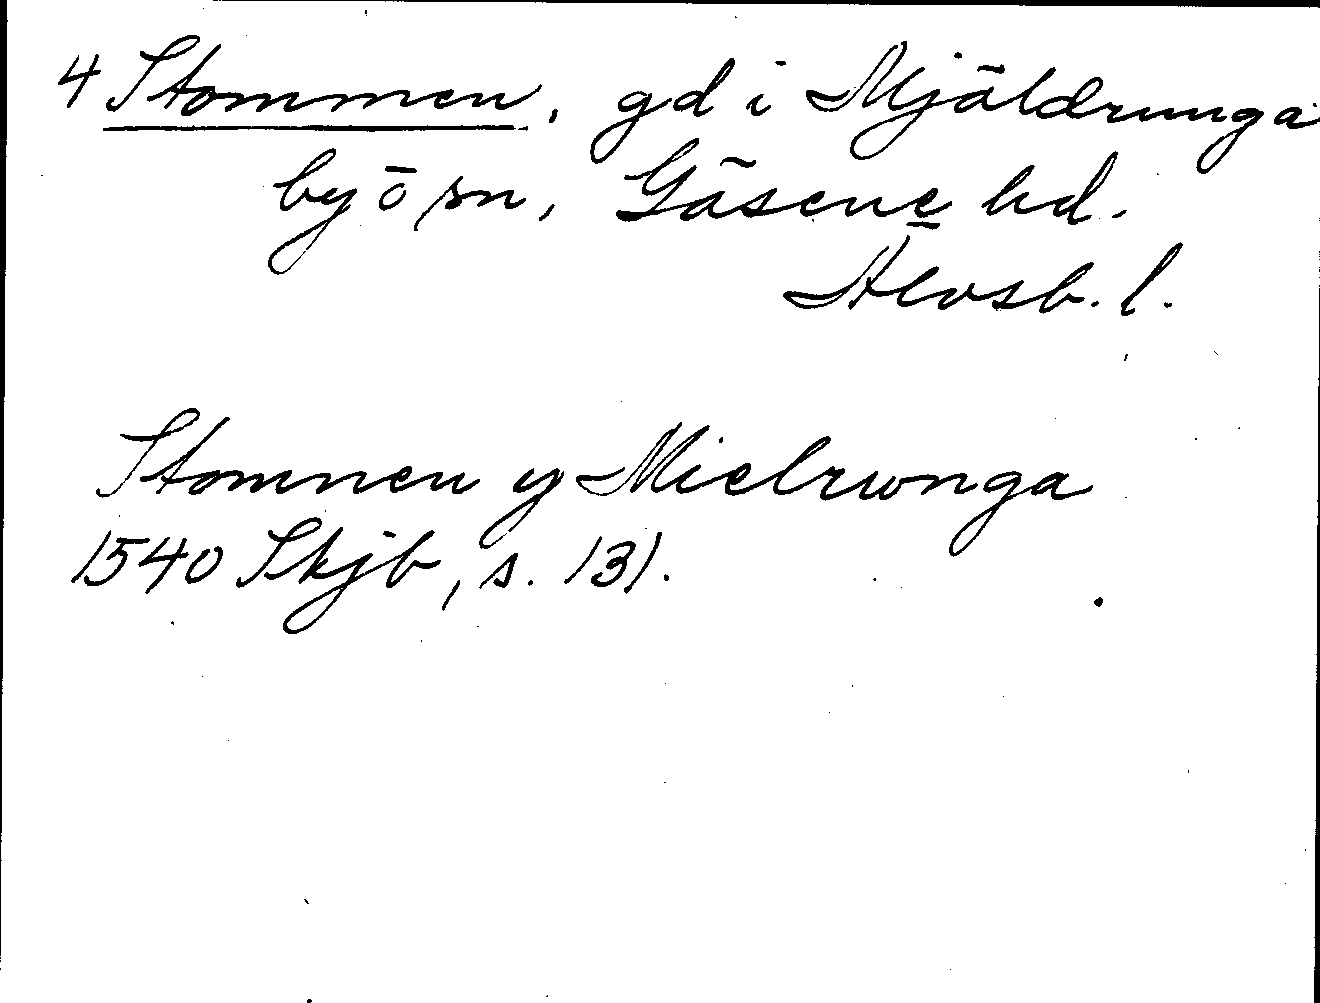 4 Stommen, gd i Mjäldrunga
by o sn, Gäsene hd.
Älvsb. l.
Stomnen y Mielrunga
1540 Skjb, s. 131.